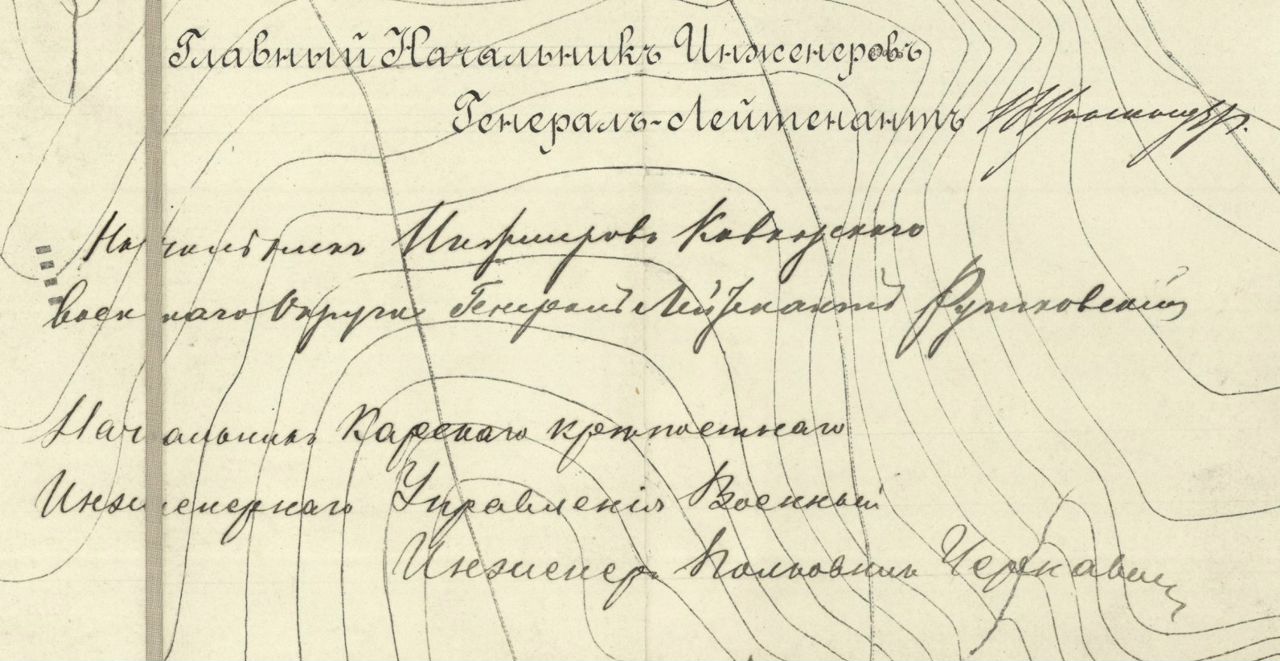 Главный Начальникъ Инженеровъ
Генералъ-Лейтенантъ
Начальникъ Инженеровъ Кавказскаго
военнаго Округа Генералъ Лейтенантъ Рутковскій
Начальникъ Карскаго крѣпостнаго
Инженернаго Управленія Военный
Инженеръ Полковникъ